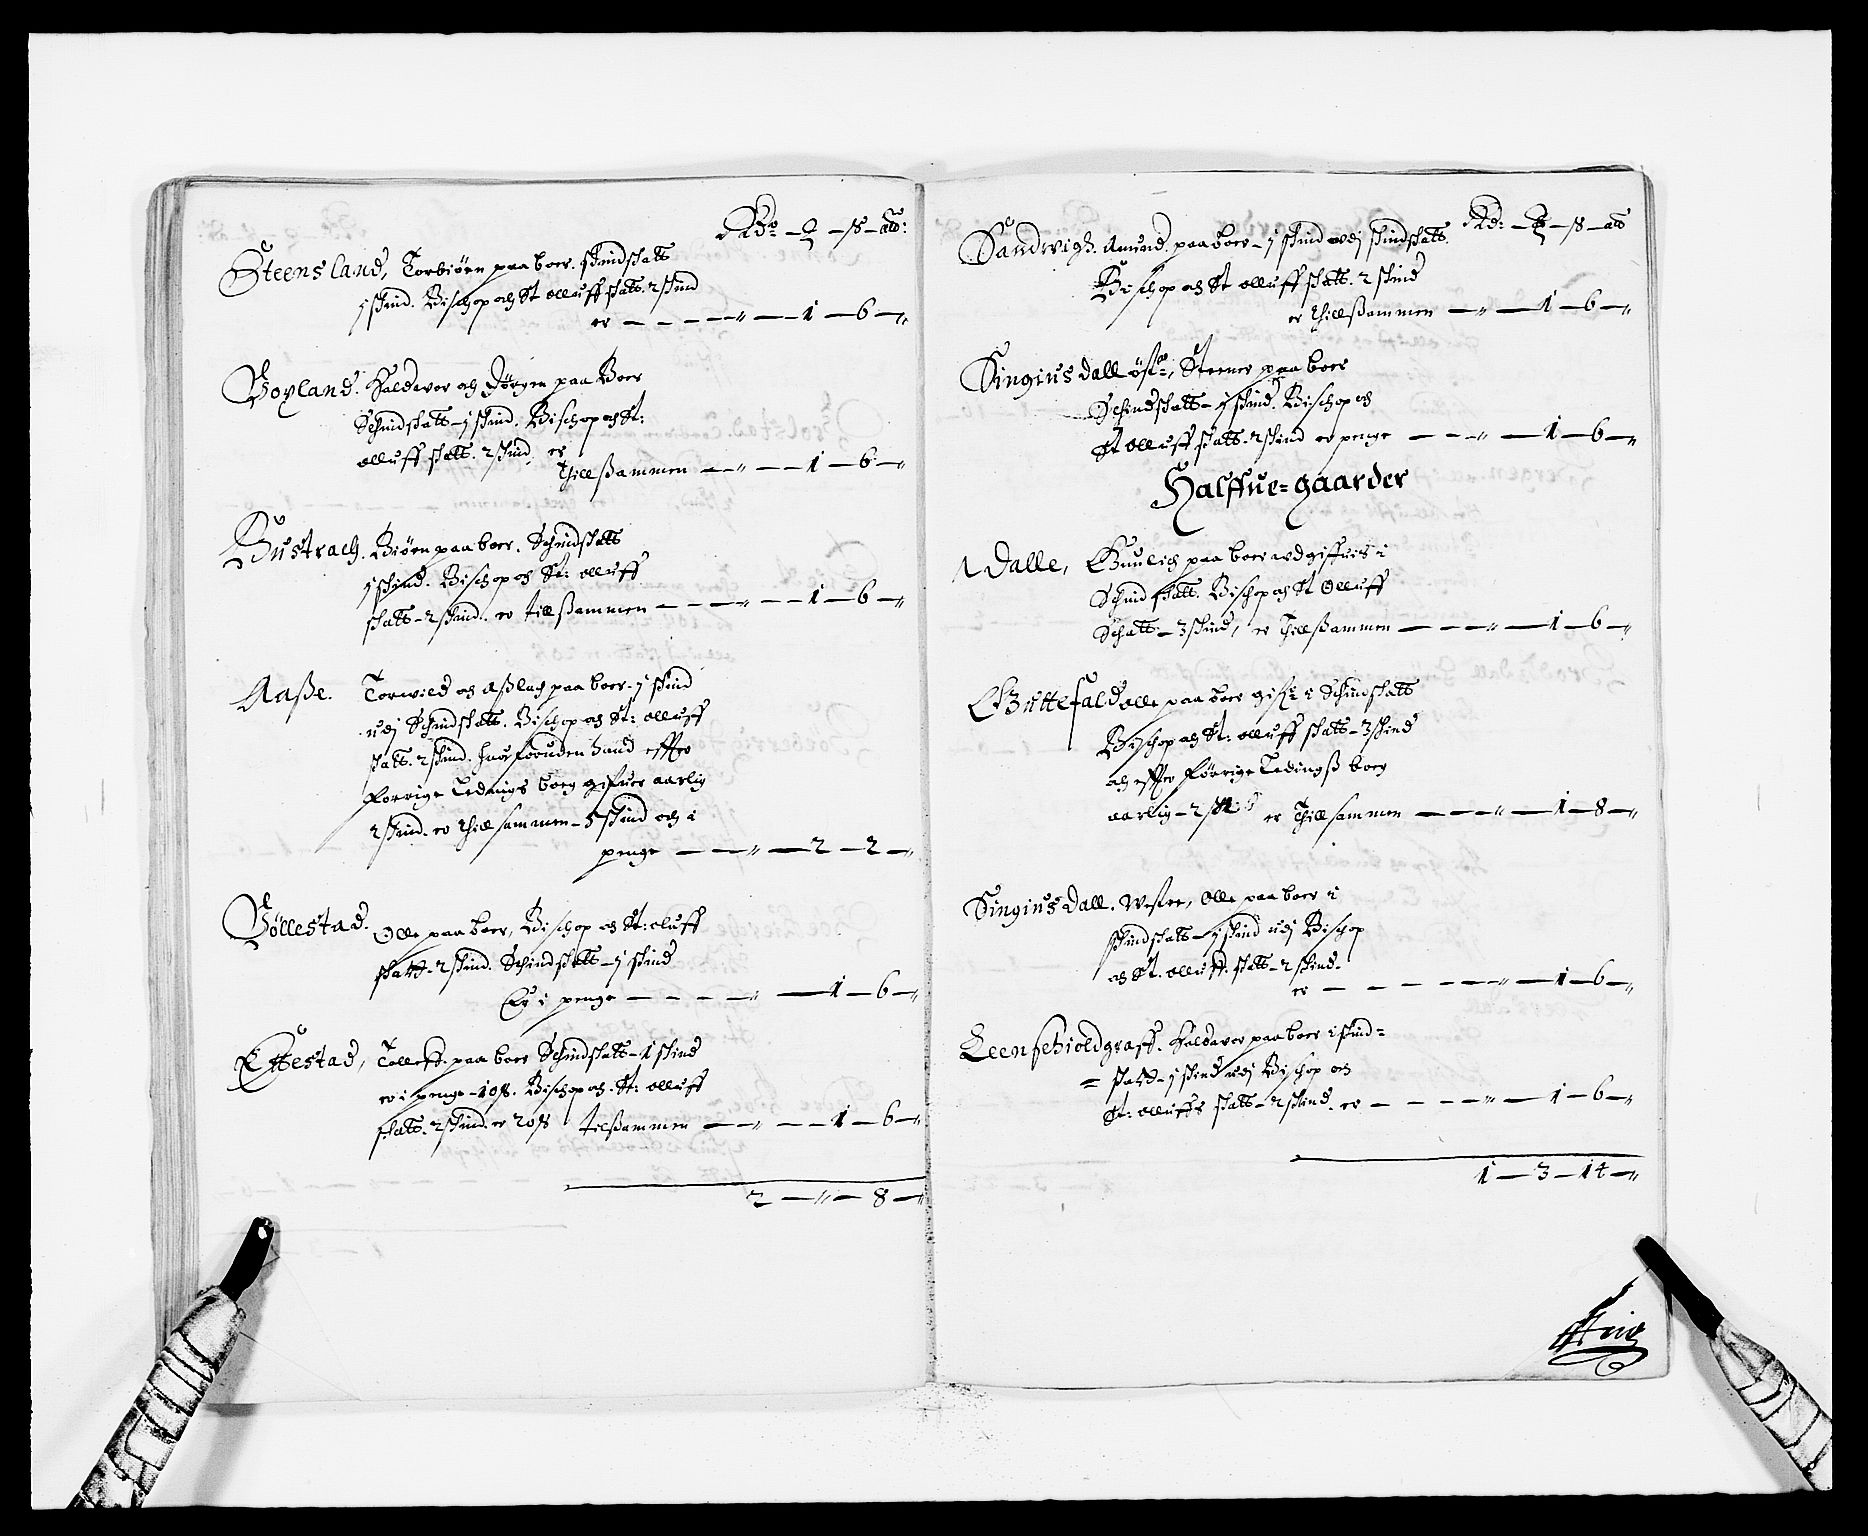 Rd: – – ß – alb:
Steensland, Torbiörn paa boer. skindskatt
j skind. Bischop och St olluff skatt. 2 skind
er – – – – „ – 1 – 6 – „
Boyland. Haldvor och Jörgen paa Boer
Schindskatt – j skind. Bischop och St:
olluff skatt. 2 skind, er
Thillßammen – „ – 1 – 6 – „
Bustrach. Biörn paa boer. Schindskatt
j skind. Bischop och St: olluff
skatt – 2 skind. er tillßammen – – – „ – – 1 – 6 – „
Aaße. Torwild och Aßlach paa boer – j skind
udj Schindskatt. Bischop och St: olluff
skatt. 2 skind. huorforuden hand effter
forrige Ledings boeg gifuer aarlig
2 skind. er thillsammen – 5 skind och i
penge – – „ – 2 – 2 – „
Böllestad. Olle paa boer, Bischop och St: oluff
skatt – 2 skind. Schindskatt – j skind
Er i penge – – – – „ – 1 – 6 – „
Ettestad, Tolleff paa boer Schindskatt – 1 skind
er i penge – 10 ß. Bischop och St: olluff
skatt. 2 skind. er 20 ß tilßammen – „ – – 1 – 6 – „
2 – „ – 8 – „
Rd: – – ß – alb
Sandwigh. Amund paa boer – j skind udj skindskatt.
Bischop och St olluff skatt. 2 skind
er thillßammen – „ – 1 – 6 – „
Singiusdall öst:, Steener paa boer
Schindskatt – j skind. Bischop och
St olluff skatt. 2 skind er penge – – „ – 1 – 6 – „
Halffue=gaarder
Dalle, Gunlich paa boer udgiffuis i
Schindskatt. Bischop och St Olluff
Schatt – 3 skind, er Thillßammen – – – „ – 1 – 6 – „
Guttefald olle paa boer gifr i Schindskatt
Bischop och St: olluff skatt – 3 skind
och effter förrige Ledingß boeg
aarlig – 2 ß er Thillsammen – – – „ – 1 – 8 – „
Singiusdall. Westre, Olle paa boer i
skindskatt – j skind udj Bischop
och St. olluff. skatt – 2 skind –
er – – – – – „ – 1 – 6 – „
Leenschioldgraff. Haldvor paa boer i skind=
= skatt – j skind udj Bischop och
St: olluffs skatt – 2 skind. er – – – – „ – 1 – 6 – „
1 – 3 – 14 – „